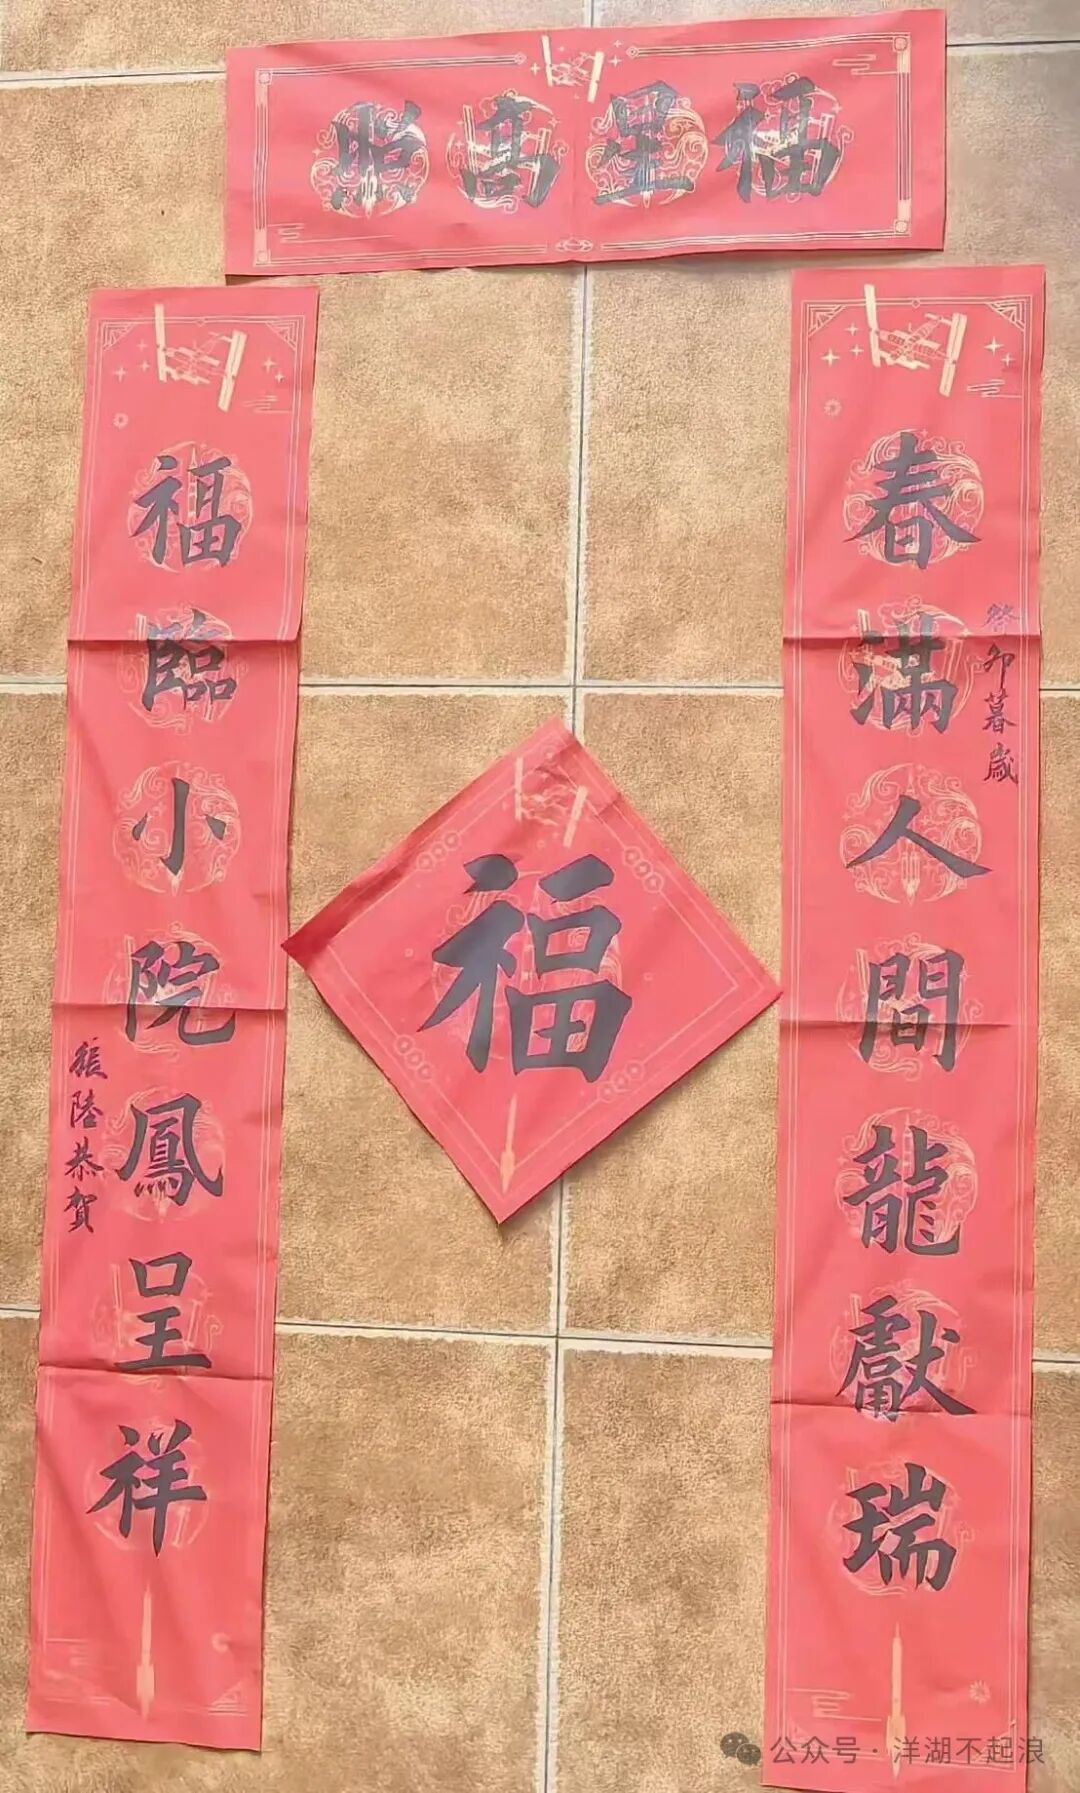 福星高照
春滿人間龍獻瑞
癸卯暮歲
福臨小院鳳呈祥
振陸恭賀
福
公众号·洋湖不起浪